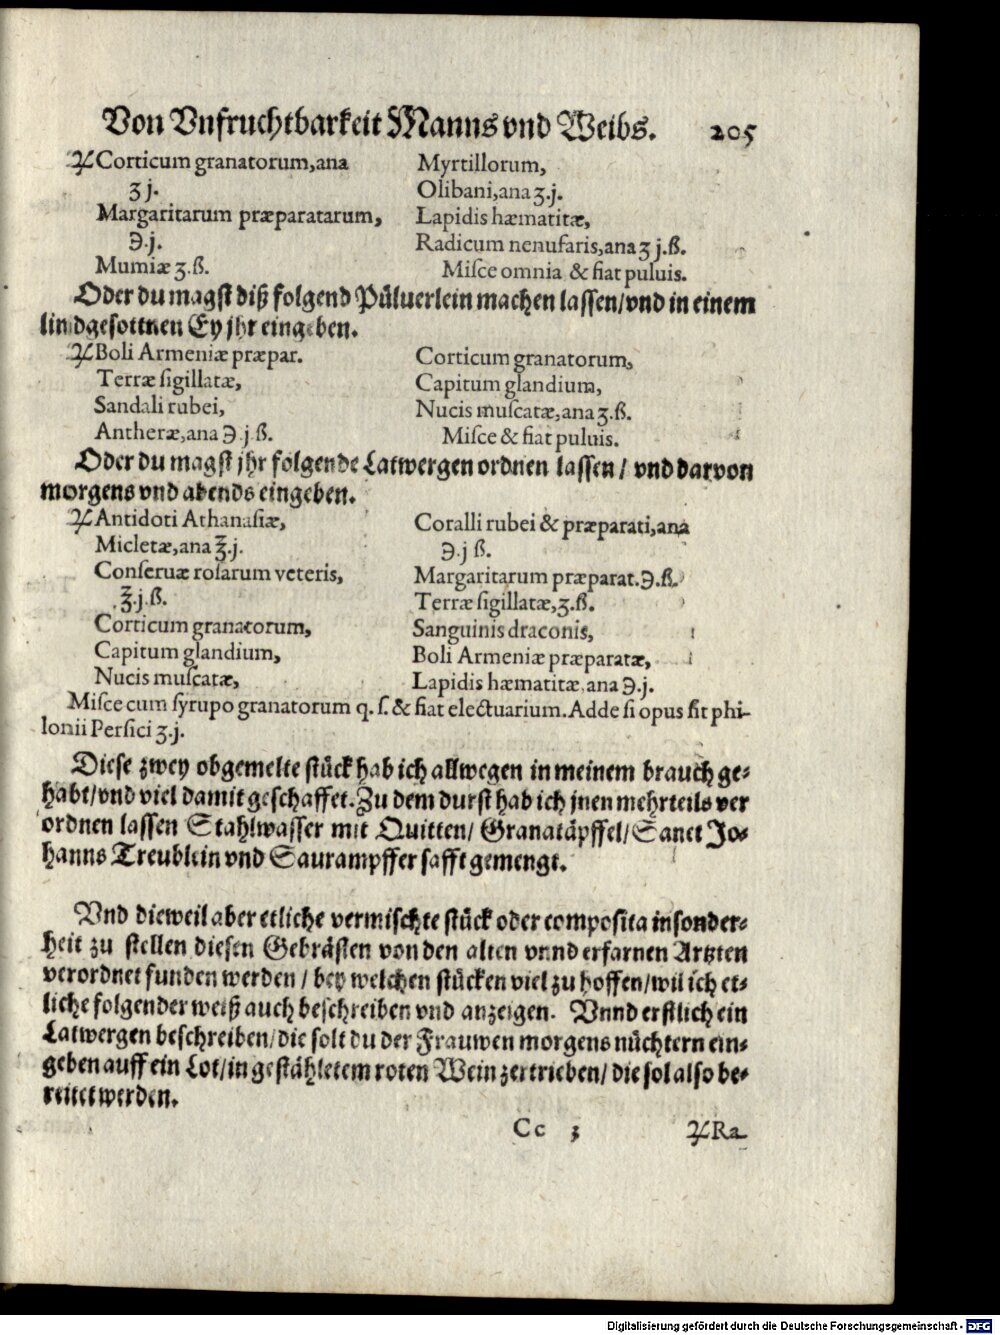 Von Vnfruchtbarkeit Manns vnd Weibs. 205
♃Corticum granatorum,ana
ʒ j.
Margaritarum præparatarum,
℈.j.
Mumiæ ʒ.ß.
Myrtillorum,
Olibani,ana ʒ.j.
Lapidis hæmatitæ,
Radicum nenufaris,ana ʒ j.ß.
Miſce omnia & fiat puluis.
Oder du magſt diß folgend Pülverlein machen laſſen/vnd in einem
lindgeſottnen Ey jhr eingeben.
♃Boli Armeniæ præpar.
Terræ ſigillatæ,
Sandali rubei,
Antheræ,ana ℈.j ß.
Corticum granatorum,
Capitum glandium,
Nucis muſcatæ,ana ʒ.ß.
Miſce & fiat puluis.
Oder du magſt jhr folgende Latwergen ordnen laſſen / vnd darvon
morgens vnd abends eingeben.
♃Antidoti Athanaſiæ,
Micletæ,ana ℥.j.
Conſeruæ roſarum veteris,
℥.j.ß.
Corticum granatorum,
Capitum glandium,
Nucis muſcatæ,
Coralli rubei & præparati,ana
℈.j ß.
Margaritarum præparat.℈.ß.
Terræ ſigillatæ,ʒ.ß.
Sanguinis draconis,
Boli Armeniæ præparatæ,
Lapidis hæmatitæ,ana ℈.j.
Miſce cum ſyrupo granatorum q. ſ.& fiat electuarium.Adde ſi opus ſit phi-
lonii Perſici ʒ.j.
Dieſe zwey obgemelte ſtück hab ich allwegen in meinem brauch ge-
habt/vnd viel damit geſchaffet.Zu dem durſt hab ich jnen mehrteils ver
ordnen laſſen Stahlwaſſer mit Quitten/ Granatäpffel/Sanct Jo-
hanns Treublein vnd Saurampffer ſafft gemengt.
Vnd dieweil aber etliche vermiſchte ſtück oder compoſita inſonder-
heit zu ſtellen dieſen Gebräſten von den alten vnnd erfarnen Artzten
verordnet funden werden / bey welchen ſtücken viel zu hoffen/wil ich et-
liche folgender weiß auch beſchreiben vnd anzeigen. Vnnd erſtlich ein
Latwergen beſchreiben/die ſolt du der Frauwen morgens nüchtern ein-
geben auff ein Lot/in geſtähletem roten Wein zertrieben/ die ſol alſo be-
reitet werden.
Cc 3 ♃Ra-
Digitalisierung gefördert durch die Deutsche Forschungsgemeinschaft - DFG